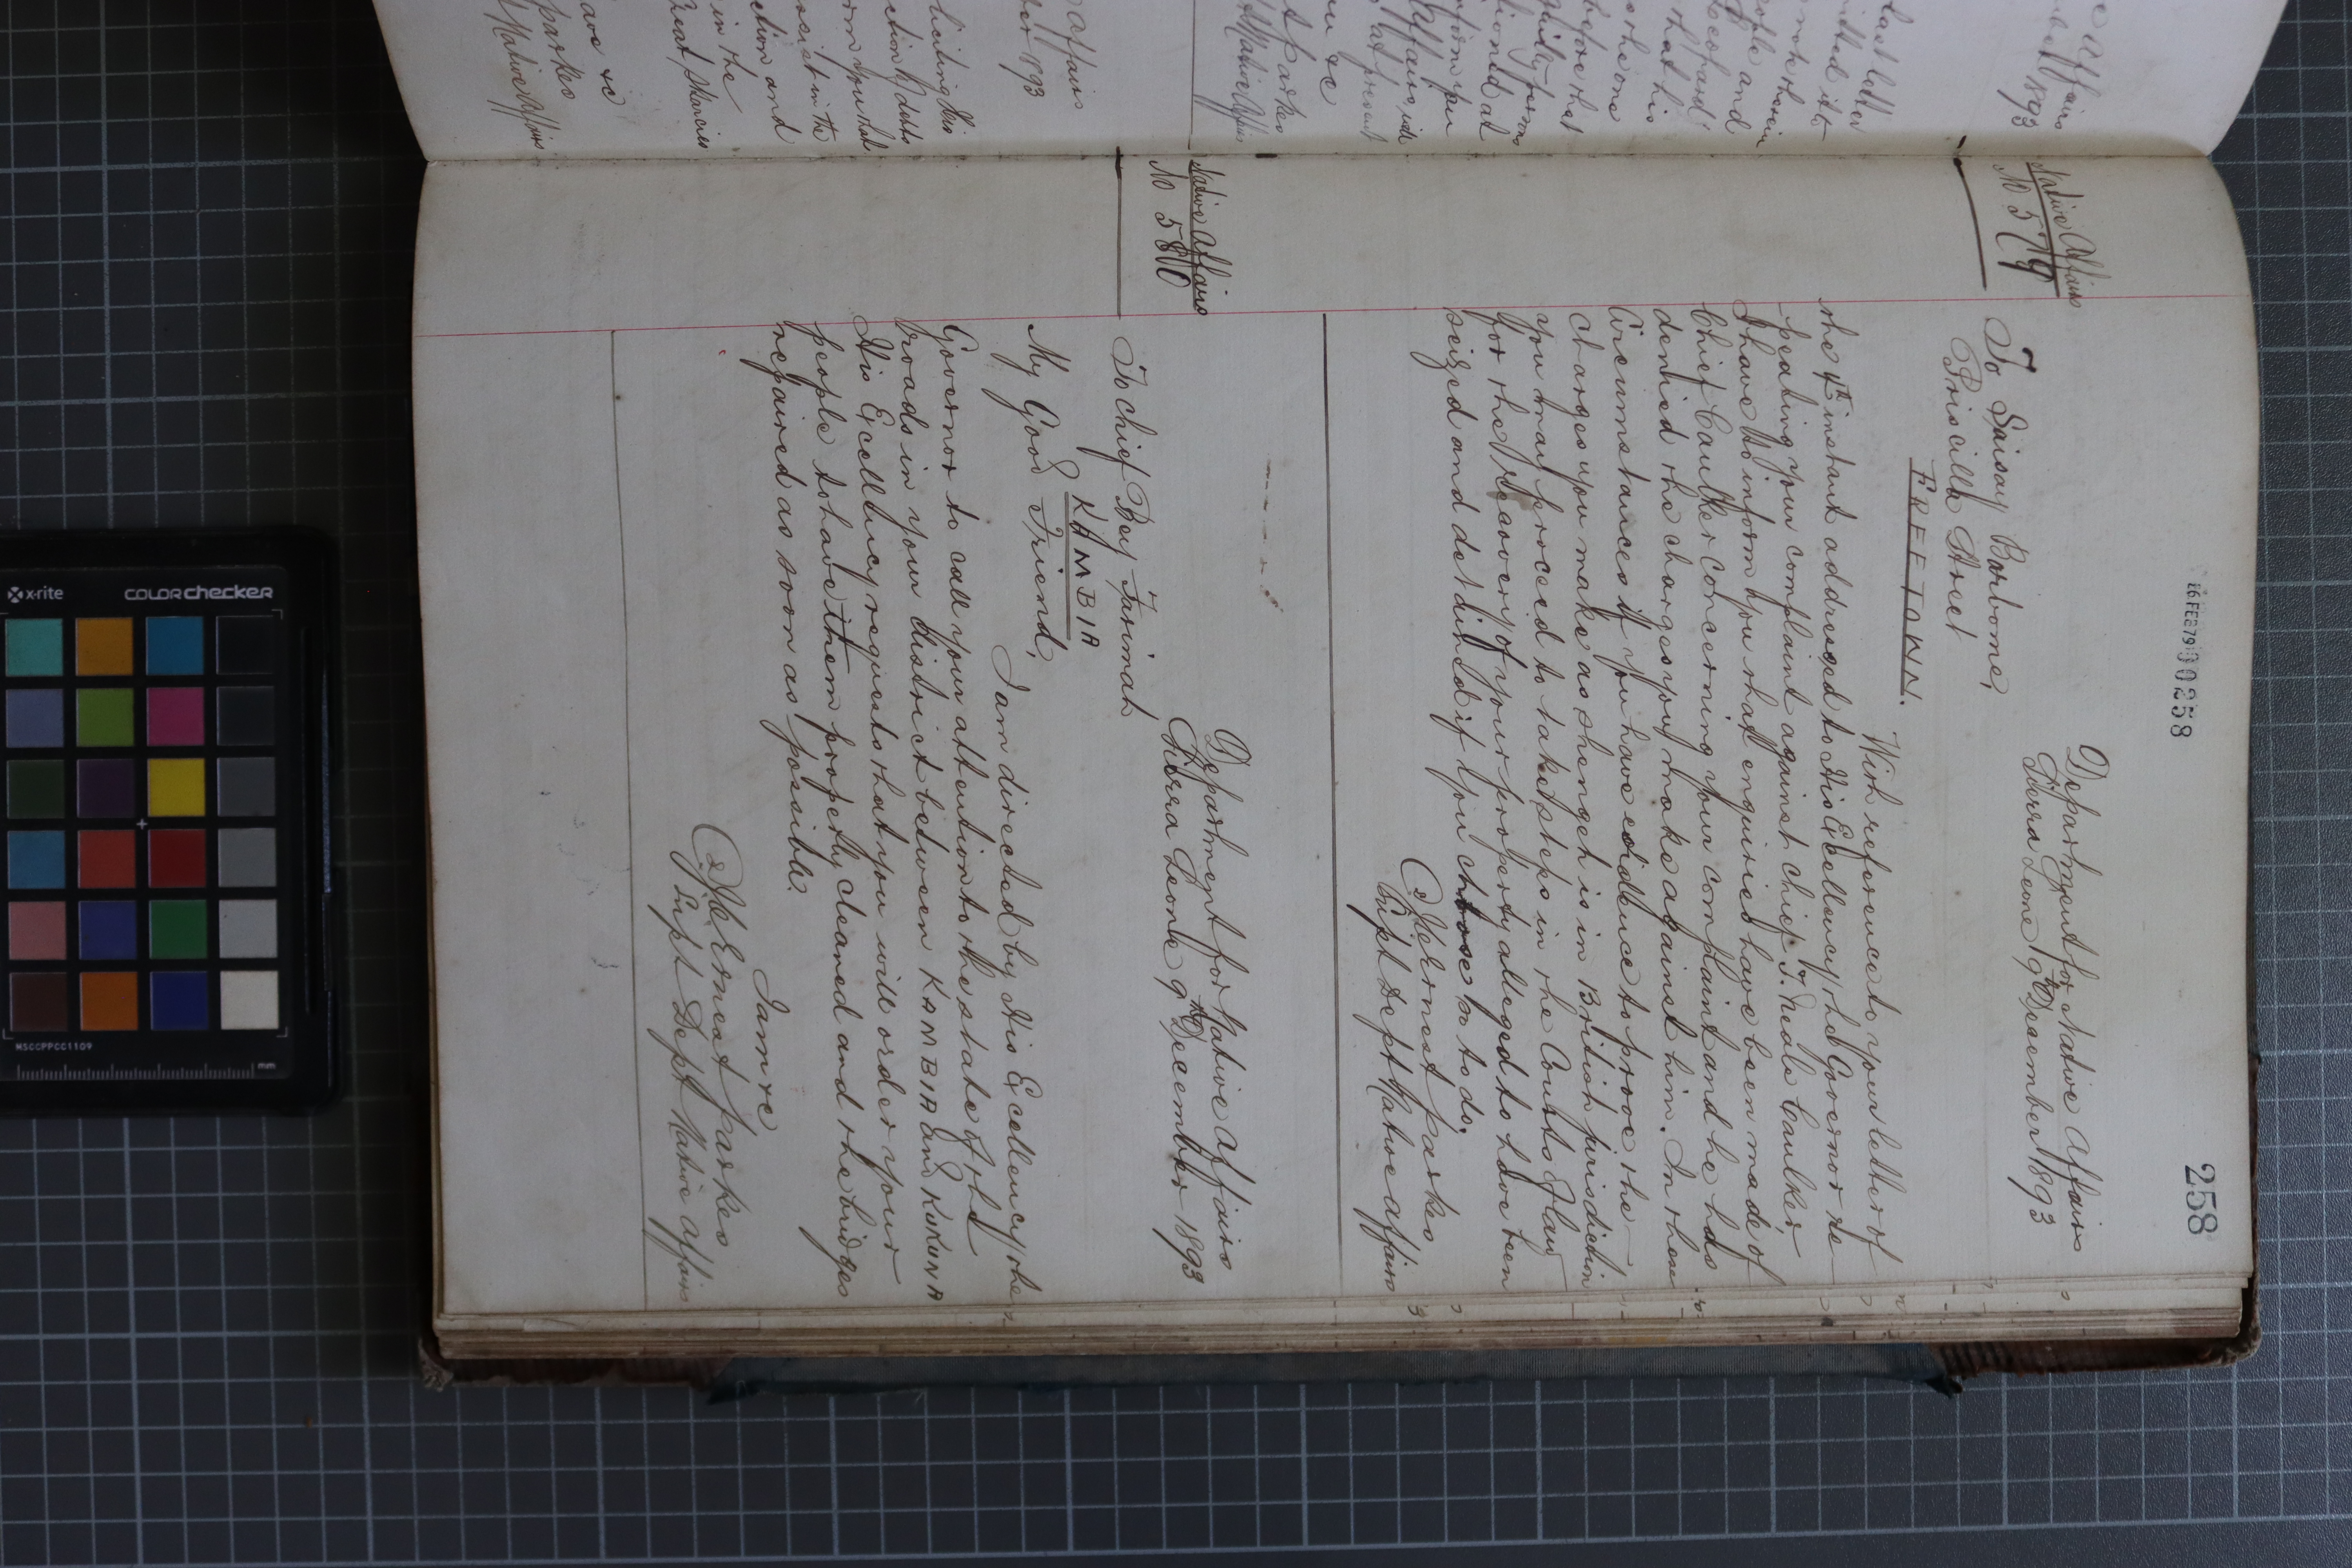 258
16 FEB 79 000258
Native Affairs
No 579
Department for Native Affairs
Sierra Leone 9th December 1893
To Saisay Barbone,
Priscilla Street
FREETOWN.
With reference to your letter of
the 4th instant addressed to His Excellency the Governor re-
peating your complaint against chief T. Neale Caulker
I have to inform you that enquiries have been made of
Chief Caulker concerning your complaint and he has
denied the charges you make against him. In these
Circumstances if you have evidence to prove the
charges you make as Shengeh is in British jurisdiction
you may proceed to take steps in the Courts of law
for the Recovery of your property alleged to have been
seized and detained if you choose so to do.
(s) J C Ernest Parkes
Supt Dept Native Affairs
Native Affairs
No 580
Department for Native Affairs
Sierra Leone 9th December 1893
To Chief Bey Farimah
KAMBIA
My Good Friend,
I am directed by His Excellency the
Governor to call your attention to the state of the
roads in your district between KAMBIA and KUKUNA
His Excellency requests that you will order your
people to have them properly cleaned and the bridges
repaired as soon as possible.
I am &c
(s) J C Ernest Parkes
Supt Dept Native Affairs
Affairs
1893
last letter
before that
inform you
Affairs
at present
&c
Parkes
Native Affairs
Affairs
1893
soliciting His
debts
inform you that
assist in the
and
in the
Great Scarcies
have &c
Parkes
Native Affairs
x-rite
COLORchecker
MSCCPPCC1109
mm